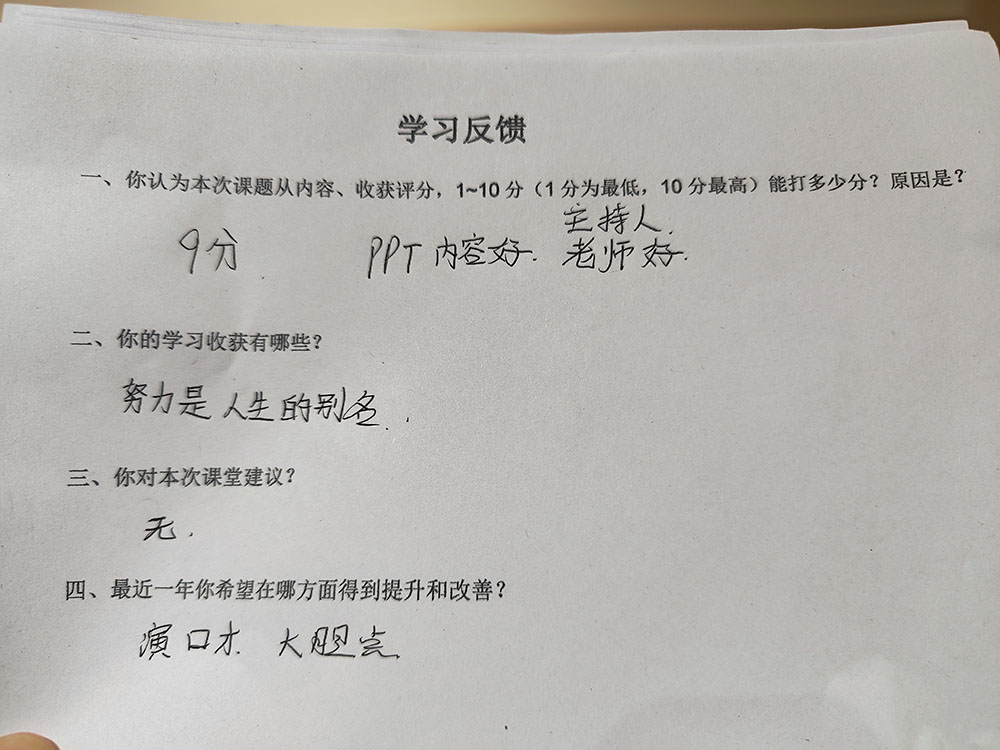 学习反馈
一、你认为本次课题从内容、收获评分，1~10 分（1 分为最低，10 分最高）能打多少分？原因是？
主持人.
9分 PPT 内容好. 老师好.
二、你的学习收获有哪些？
努力是人生的别名.
三、你对本次课堂建议？
无.
四、最近一年你希望在哪方面得到提升和改善？
演口才 大胆点